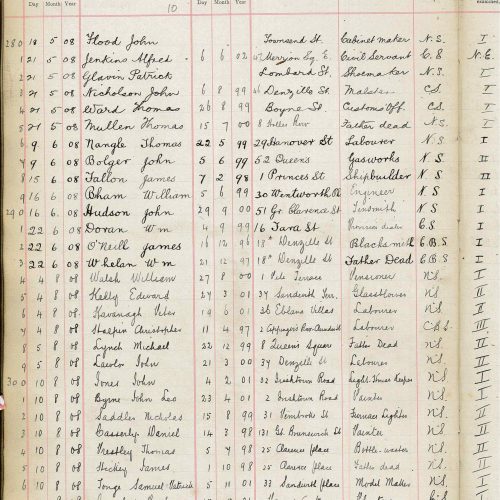 Day Month Year Day Month Year
10
280 18 5 08 Flood John Townsend St. Cabinet maker N.S. I
1 21 5 08 Jenkins Alfred 6 6 02 Merryon Sq. E. Civil Servant C.S N.E.
2 21 5 08 Glavin Patrick Lombard St. Shoemaker N.S. I
3 21 5 08 Nicholson John 6 8 99 Denzille St. C.S. I
4 21 5 08 Ward Thomas 26 8 99 Boyne St. Customs Off. C.S. I
5 21 5 08 Mullen Thomas 15 7 00 8 Holles Row Father dead N.S. I
6 9 6 08 Nangle Thomas 22 5 99 29 Hanover St Labourer N.S. I
7 9 6 08 Bolger John 5 6 99 52 Queens Gasworks N.S. II
8 15 6 08 Fallon James 7 2 98 1 Princes St Shipbuilder N.S. II
9 16 6 08 Bham William 5 6 99 30 Wentworth Pl. Engineer N.S I
290 16 6 08 Hudson John 29 9 00 51 Gt Clarence St. Tinsmith N.S I
1 22 6 08 Doran Wm 4 9 99 16 Tara St C.S I
2 22 6 08 O'Neill James 16 12 96 18A Denzille St Blacksmith C.B.S I
3 22 6 08 Whelan Wm 21 12 97 18A Denzille St Father Dead C.B.S I
4 4 8 08 Walsh William 27 8 00 1 Vele Terrace Pensioner N.S. I
5 4 8 08 Kelly Edward 27 3 01 34 Sandwith Terr. Glassblower N.S. II
6 4 8 08 Kavanagh Peter 19 6 01 36 Eblana Villas Labourer N.S. II
7 4 8 08 Halpin Christopher 11 4 97 Labourer C.B.S. III
8 5 8 08 Lynch Michael 22 12 99 8 Queens Square Father Dead N.S. II
9 5 8 08 Lawlor John 21 3 00 34 Denzille St Labourer N.S. I
300 10 8 08 Jones John 4 2 01 32 Irishtown Road Light House Keeper N.S. I
1 10 8 08 Byrne John Leo 23 4 01 2 Irishtown Road Painter N.S. I
2 10 8 08 Saddler Nicholas 15 8 99 31 Pembroke St Furnace Lighter N.S. II
3 10 8 08 Casserly Daniel 14 3 98 131 Gt. Brunswick St Painter N.S. II
4 10 8 08 Prestley Thomas 5 4 98 25 Clarence place N.S. II
5 10 8 08 Hickey James 1 10 98 25 Clarence place Father dead N.S. II
6 10 8 08 Tonge Samuel Patrick 5 11 00 33 Sandwith place Model Maker N.S. I